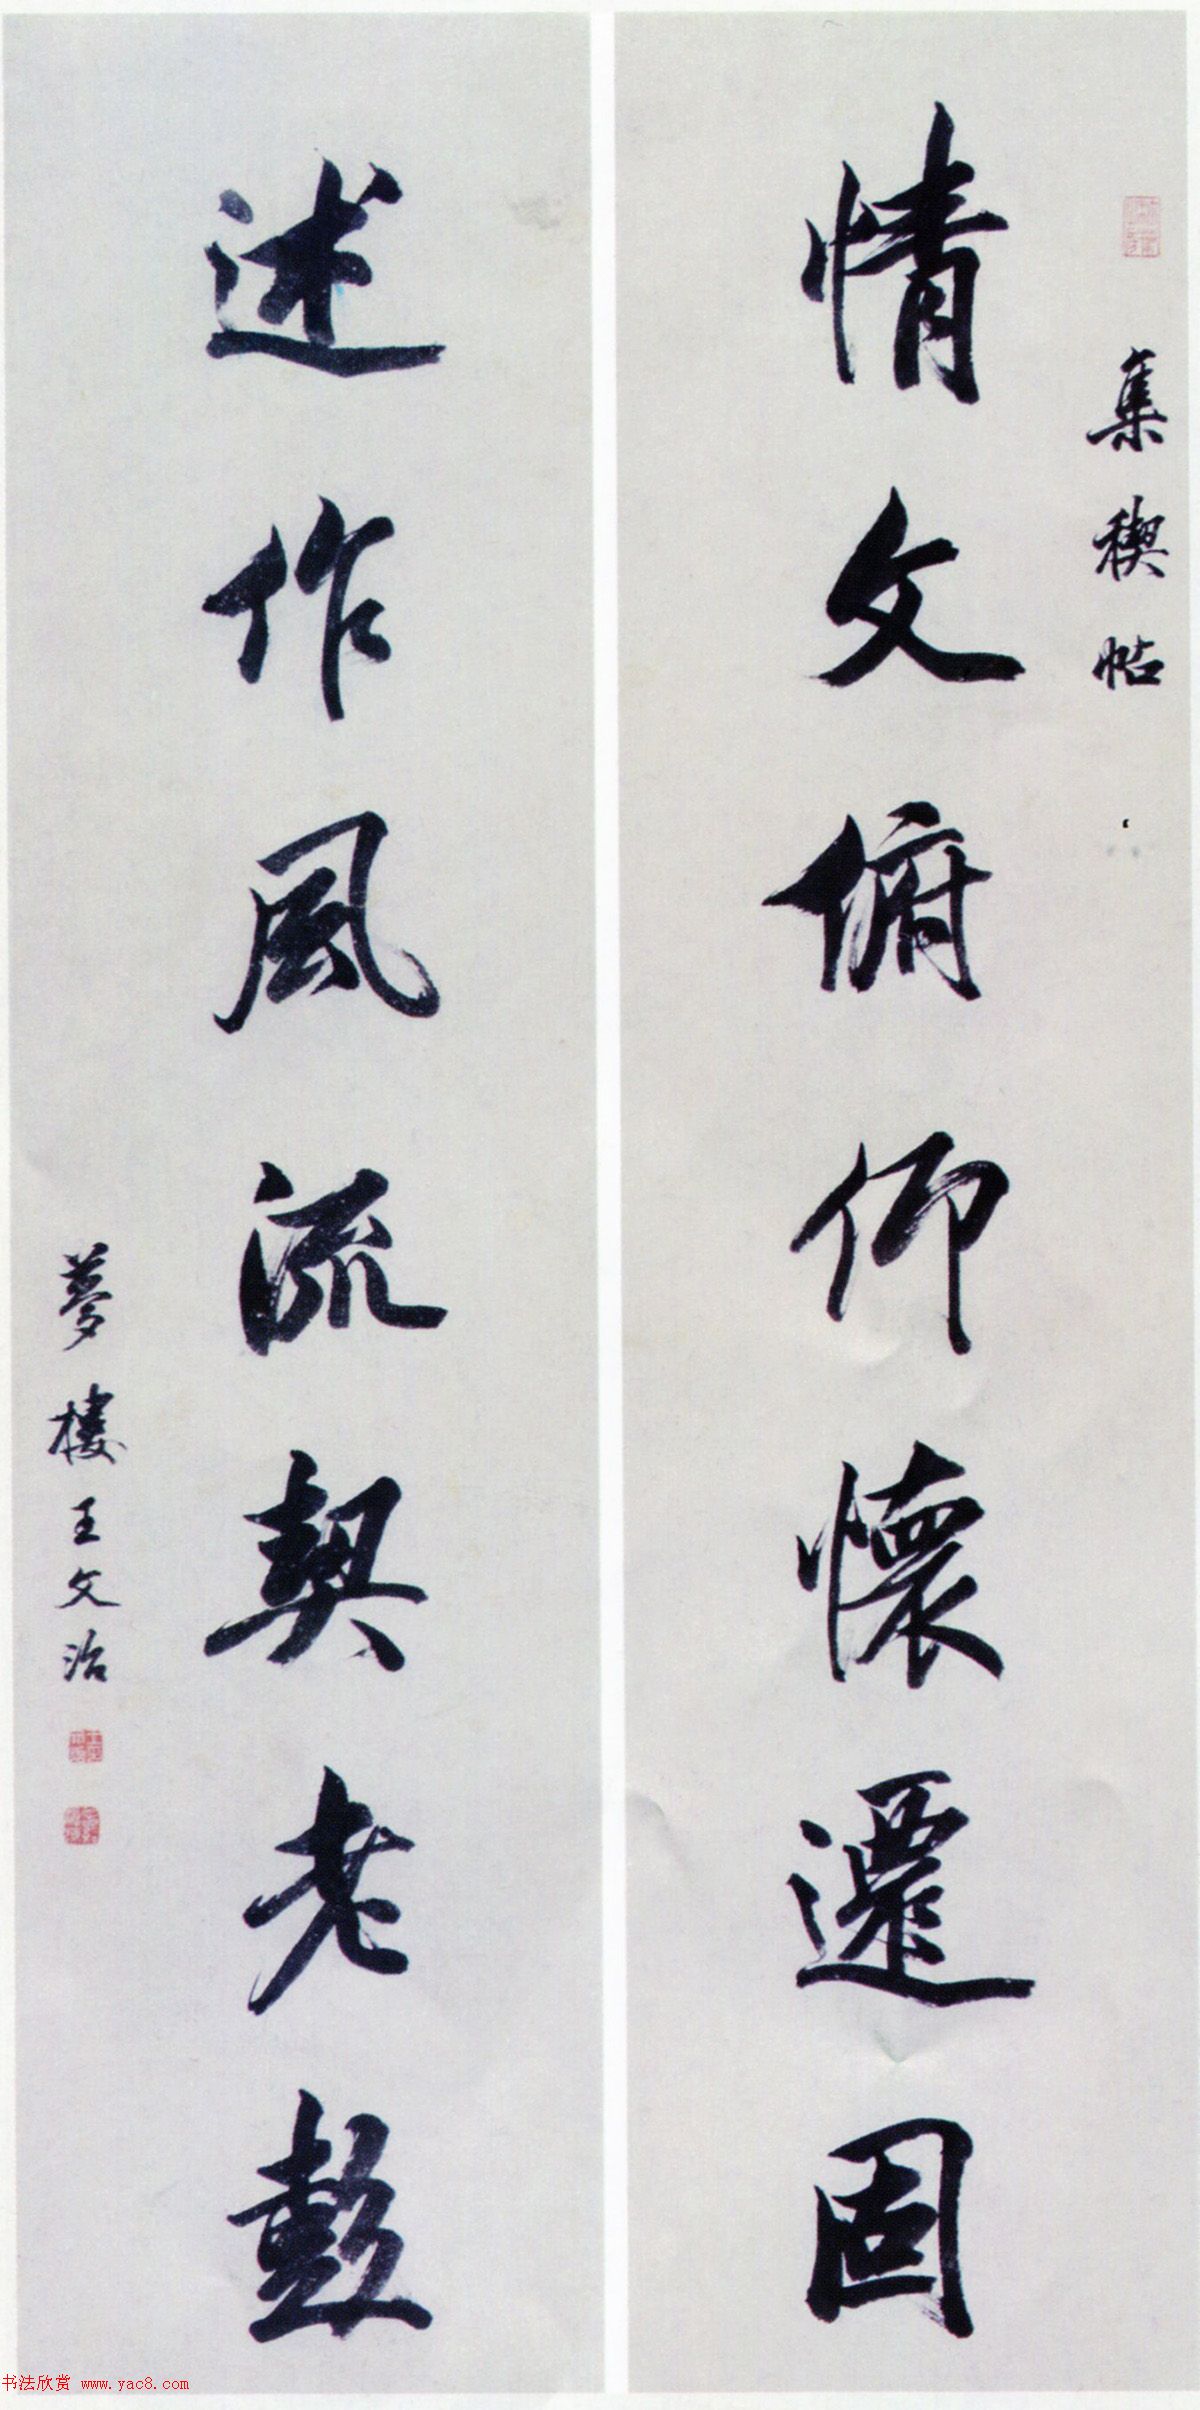 集禊帖
情文俯仰懷遷固
述作風流契老彭
夢樓王文治
书法欣赏 www.yac8.com